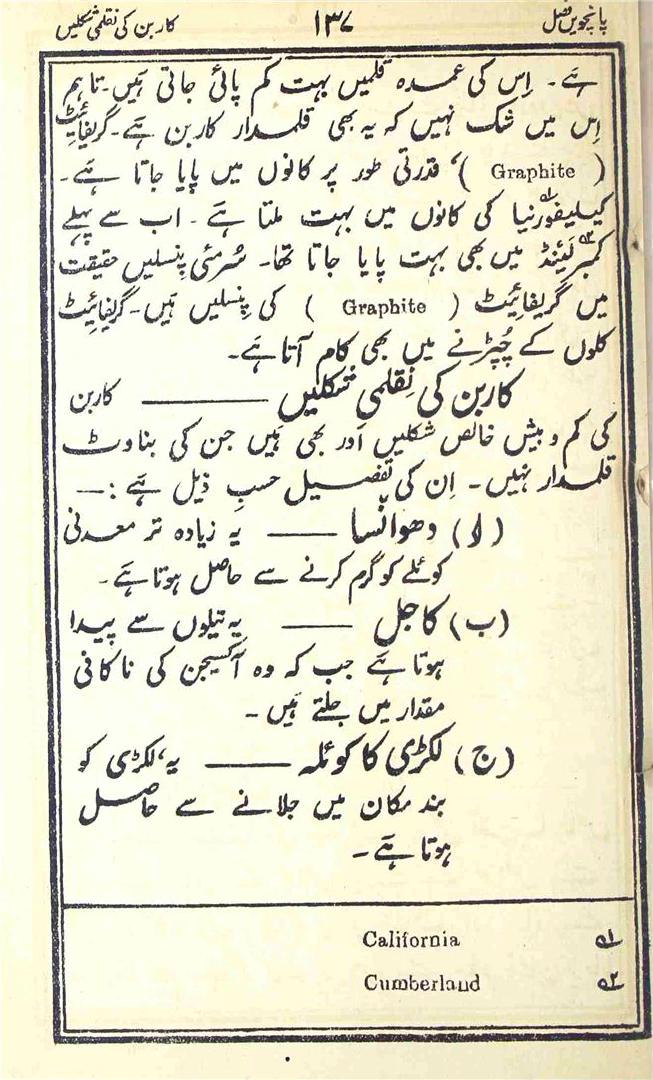 پانچویں فصل ۱۳۷ کاربن کی نقلمی شکلیں
ہے۔ اِس کی عمدہ قلمیں بہت کم پائی جاتی ہَیں۔ تاہم
اِس میں شک نہیں کہ یہ بھی قلمدار کاربن ہے۔ گریفائیٹ
( Graphite )، قدرتی طور پر کانوں میں پایا جاتا ہے۔
کیلیفورنیا؁۱ کی کانوں میں بہت ملتا ہے۔ اب سے پہلے
کمبرلَینڈ؁۲ میں بھی بہت پایا جاتا تھا۔ سُرمئی پنسلیں حقیقت
میں گریفائیٹ ( Graphite ) کی پِنسلیں ہَیں۔ گریفائیٹ
کلوں کے چُپڑنے میں بھی کام آتا ہے۔
کاربن کی نِقلمی شکلیں ——— کاربن
کی کم و بیش خالص شکلیں اَور بھی ہَیں جن کی بناوٹ
قلمدار نہیں۔ اِن کی تفصیل حسبِ ذیل ہے :—
(ا) دھوانسا —— یہ زیادہ تر معدنی
کوئلے کو گرم کرنے سے حاصل ہوتا ہے۔
(ب) کاجل —— یہ تیلوں سے پیدا
ہوتا ہے جب کہ وہ آکسیجن کی ناکافی
مقدار میں جلتے ہَیں۔
(ج) لکڑی کا کوئلہ —— یہ، لکڑی کو
بند مکان میں جلانے سے حاصل
ہوتا ہے۔
؁۱ California
؁۲ Cumberland